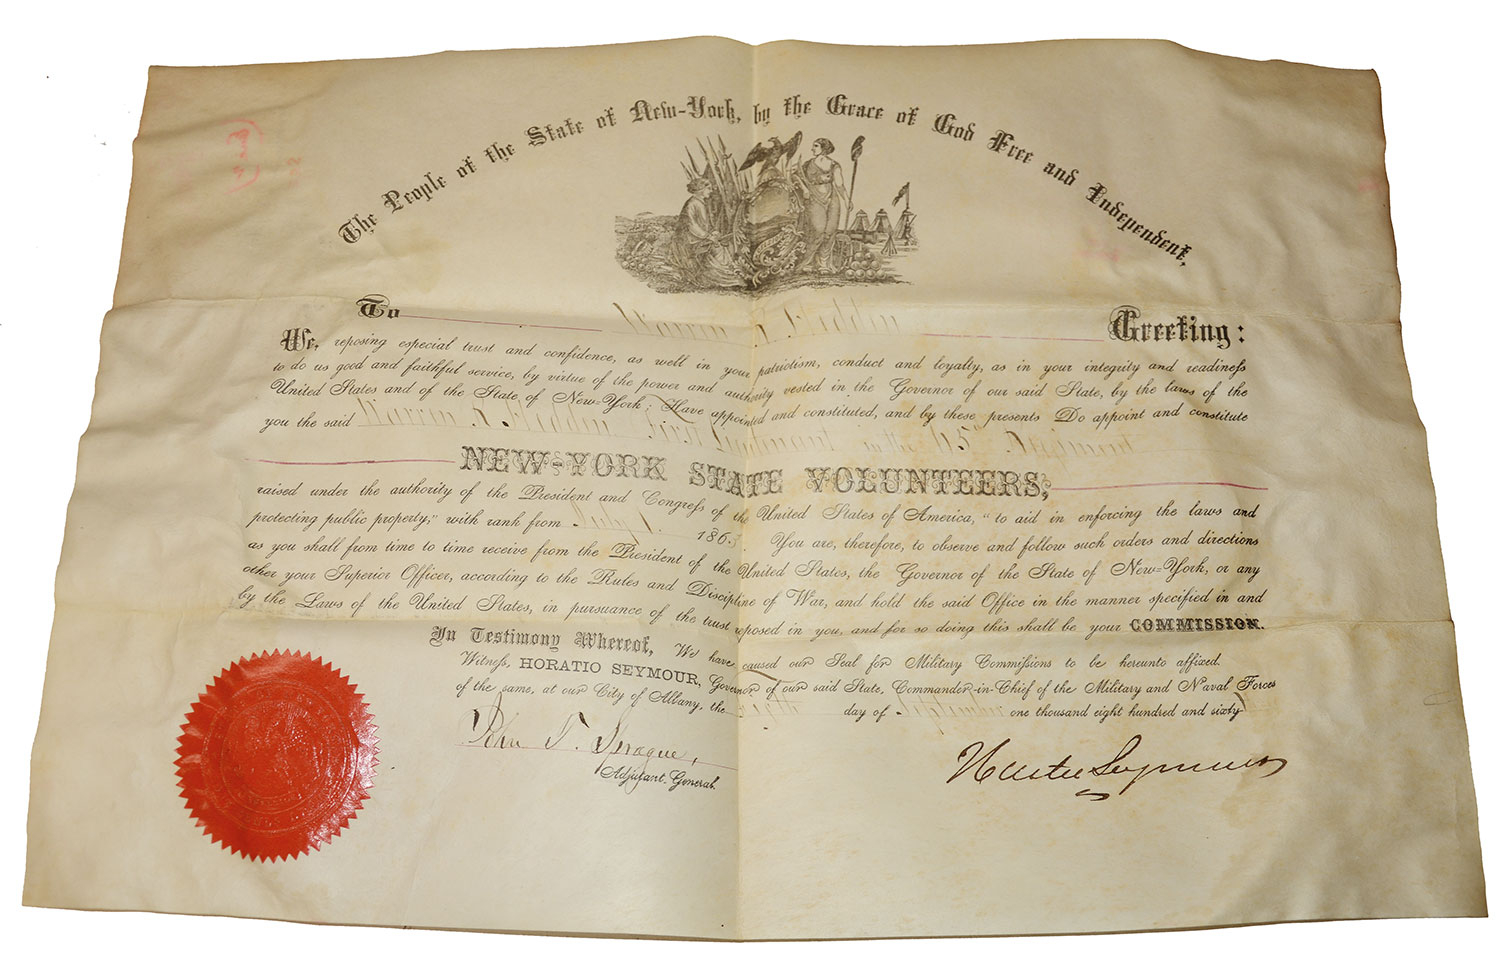 The People of the State of New-York, by the Grace of God Free and Independent,
To Warren Greeting:
We, reposing especial trust and confidence, as well in your patriotism, conduct and loyalty, as in your integrity and readiness
to do us good and faithful service, by virtue of the power and authority vested in the Governor of our said State, by the laws of the
United States and of the State of New-York; Have appointed and constituted, and by these presents Do appoint and constitute
you the said Warren First Lieutenant in the Regiment
NEW-YORK STATE VOLUNTEERS,
raised under the authority of the President and Congress of the United States of America, "to aid in enforcing the laws and
protecting public property," with rank from July 1863 You are, therefore, to observe and follow such orders and directions
as you shall from time to time receive from the President of the United States, the Governor of the State of New-York, or any
other your Superior Officer, according to the Rules and Discipline of War, and hold the said Office in the manner specified in and
by the Laws of the United States, in pursuance of the trust reposed in you, and for so doing this shall be your COMMISSION.
In Testimony Whereof, We have caused our Seal for Military Commissions to be hereunto affixed.
Witness, HORATIO SEYMOUR, Governor of our said State, Commander-in-Chief of the Military and Naval Forces
of the same, at our City of Albany, the day of September one thousand eight hundred and sixty
John T. Sprague,
Adjutant General.
Horatio Seymour